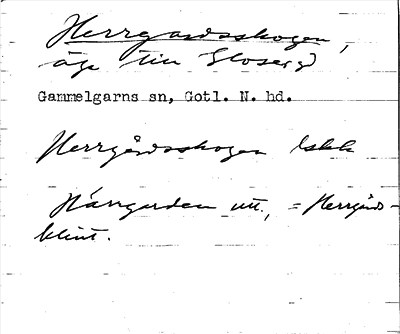 Herrgardsskogen,
äga till Glose
Gammelgarns sn, Gotl. N. hd.
Herrgårdsskogen
Härrgarden utt., = Herrgårds-
klint.